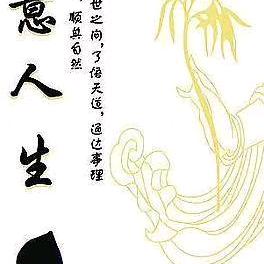 意人生
世之间，了悟天道，通达事理
，顺其自然